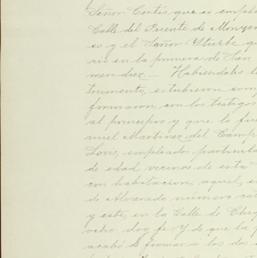 Señor Cortés, que es emplea
Calle del Puente de Monzon
es y el Señor Iturbe que
ris en la primera de San
mendez. Habiendoles le
tamente, estuvieron conf
formacion, con los testigos
al principio y que lo fue
nuel Martinez del Camp
Loris, empleado particula
de edad vecinos de esta
con habitacion aquel, en
de Alvarado numero cua
y este, en la Calle de Cheq
ocho doy fe. Y de que la p
acabó de firmar a los dos d